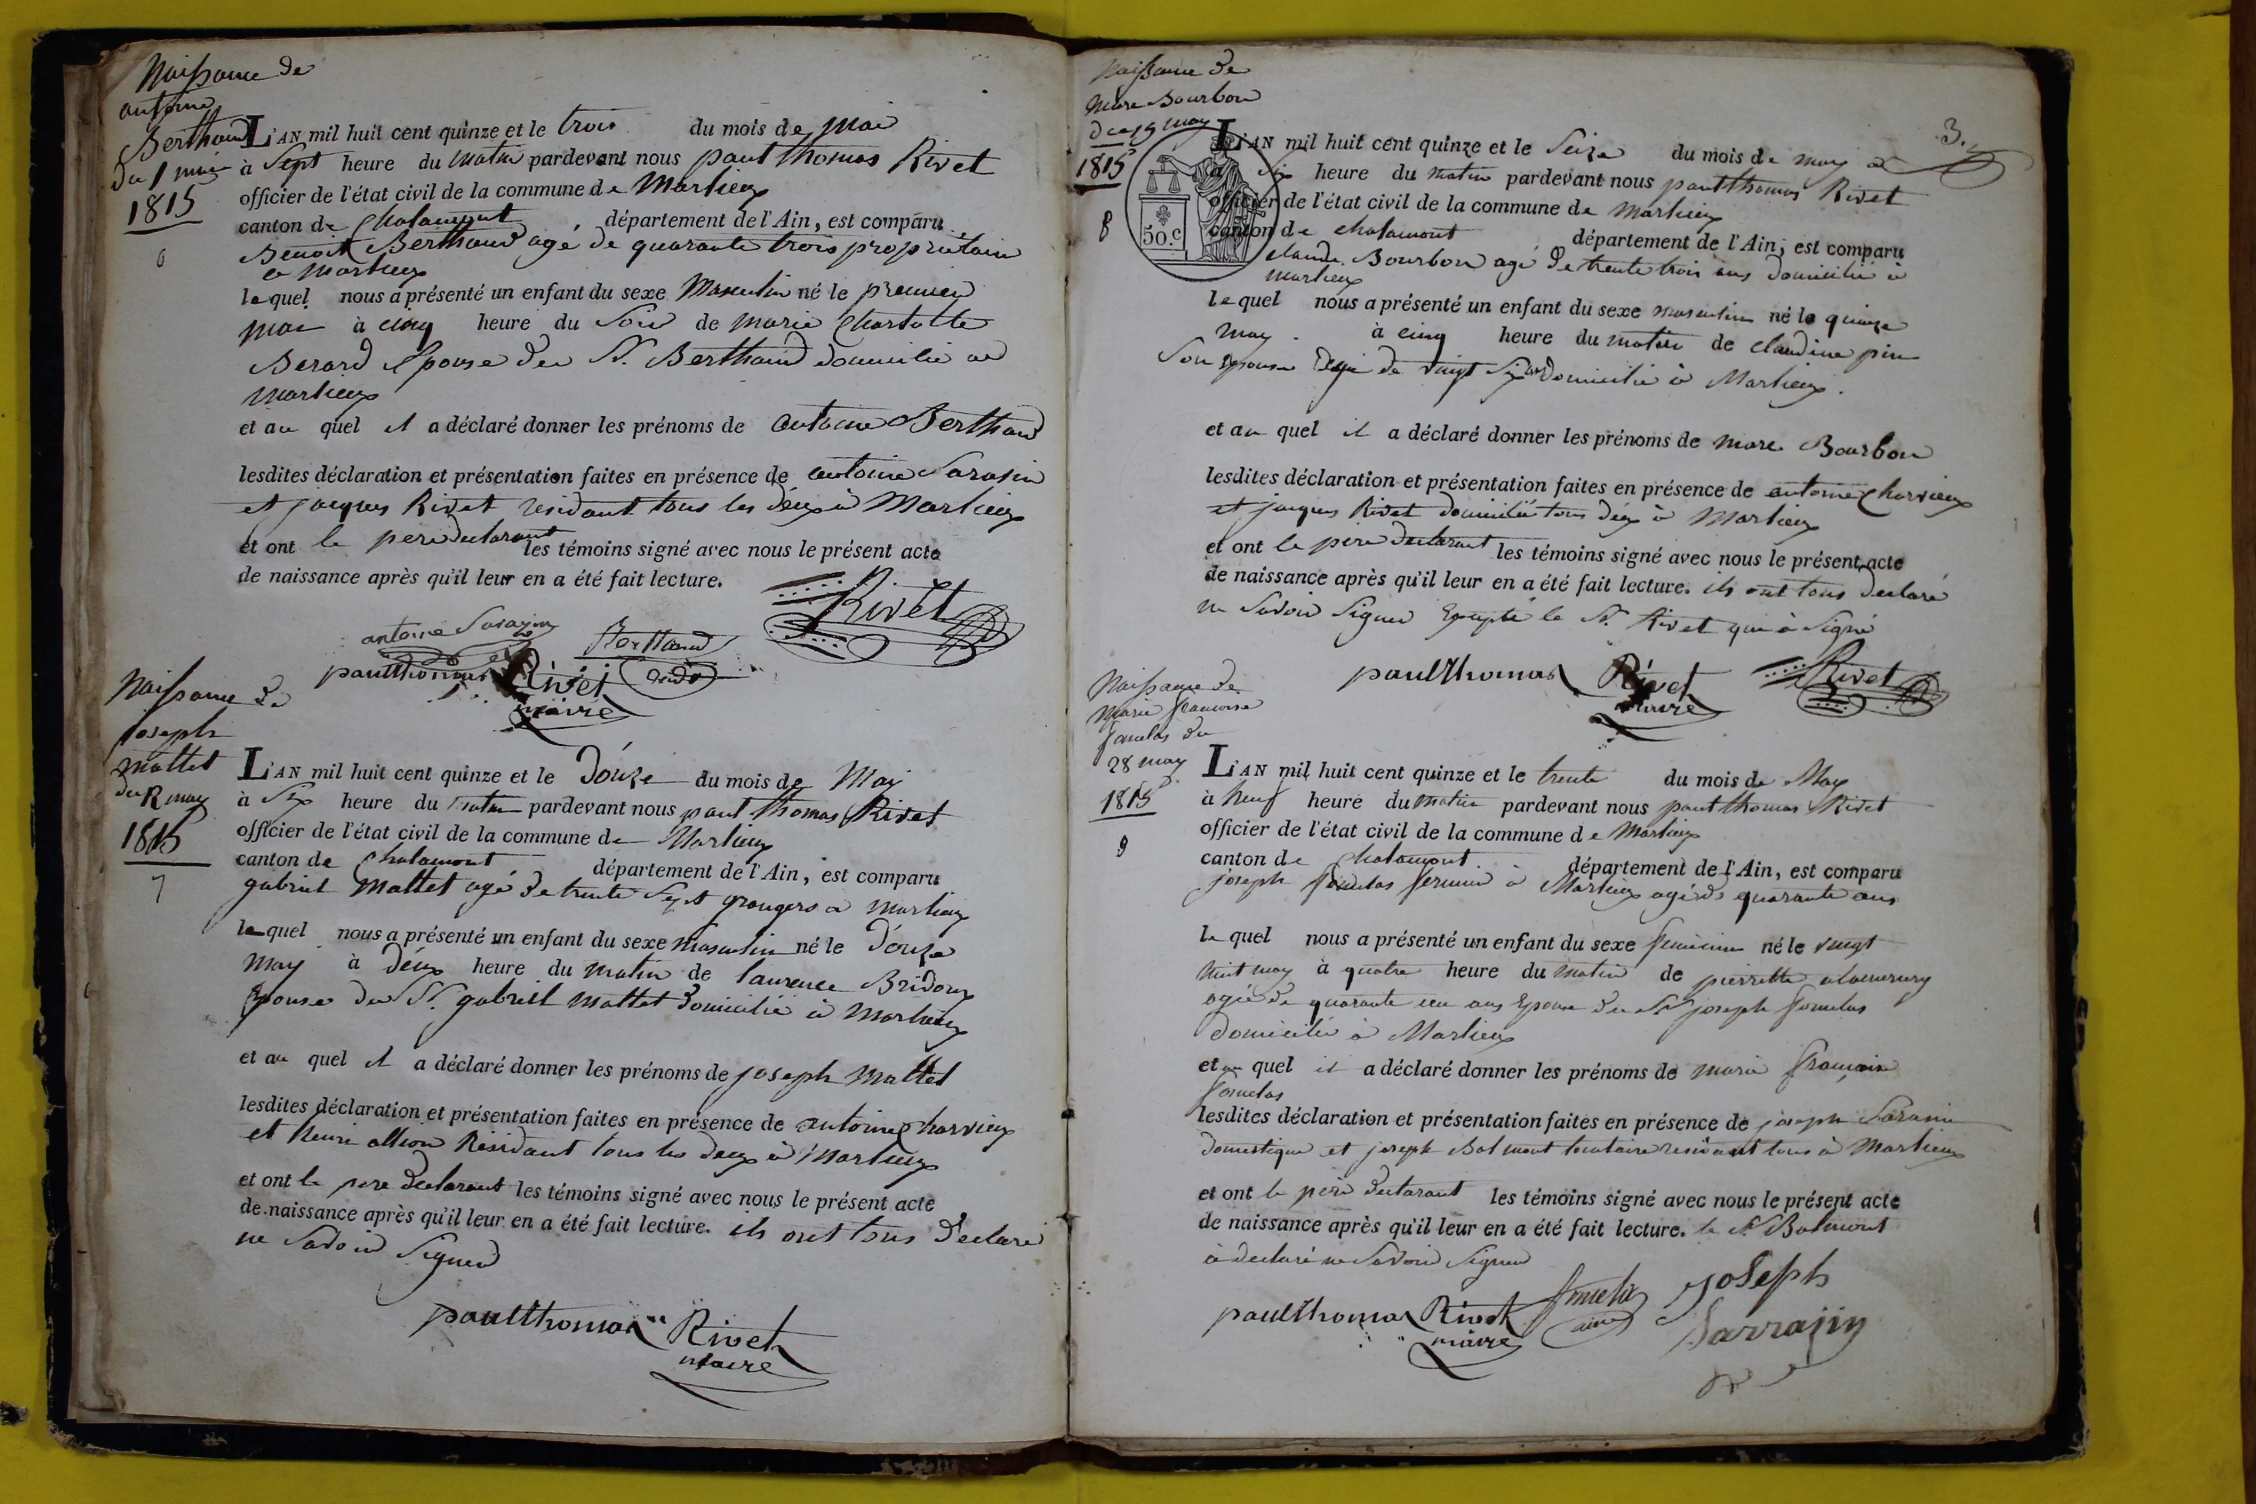 Naissance de
antoine
Berthaud
du 1 mai
1815
6
L'AN mil huit cent quinze et le trois du mois de mai
à Sept heure du matin pardevant nous paul thomas Rivet
officier de l'état civil de la commune de Marlieux
canton de Chalamont département de l'Ain, est comparu
Benoit Berthaud agé de quarante trois proprietaire
a marlieux
lequel nous a présenté un enfant du sexe Masculin né le premier
mai à cinq heure du Soir de marie Charlotte
Berard Epouse du Sr. Berthaud domicilié a
marlieux
et au quel il a déclaré donner les prénoms de antoine Berthaud
lesdites déclaration et présentation faites en présence de antoine Sarasin
et jacques Rivet residant tous les deux à Marlieux
et ont le pere declarant les témoins signé avec nous le présent acte
de naissance après qu'il leur en a été fait lecture.
Rivet
antoine Sarazin Berthaud
paulthomas Rivet
maire
Naissance de
Joseph
mattet
du 12 may
1815
7
L'AN mil huit cent quinze et le Douze du mois de May
à Six heure du matin pardevant nous paul thomas Rivet
officier de l'état civil de la commune de Marlieux
canton de Chalamont département de l'Ain, est comparu
gabriel Mattet agé de trente Sept grangers a marlieux
lequel nous a présenté un enfant du sexe masculin né le Douze
may à deux heure du matin de laurence Bridoux
Epouse du Sr. gabriel Mattet domicilié à Marlieux
et au quel il a déclaré donner les prénoms de joseph Mattet
lesdites déclaration et présentation faites en présence de antoine Charvieux
et henri allion Residant tous les deux à Marlieux
et ont le pere declarant les témoins signé avec nous le présent acte
de naissance après qu'il leur en a été fait lecture. ils ont tous declaré
ne Savoir Signer
paulthomas Rivet
maire
Naissance de
Marc Bourbon
du 15 may
1815
8
3.
50.C
L'AN mil huit cent quinze et le Seize du mois de may
à Six heure du matin pardevant nous paul thomas Rivet
officier de l'état civil de la commune de Marlieux
canton de chalamont département de l'Ain, est comparu
claude Bourbon agé de trente trois ans domicilié à
marlieux
lequel nous a présenté un enfant du sexe masculin né le quinze
may à cinq heure du matin de claudine pin
Son epouse agée de vingt Six ans domicilié à Marlieux.
et au quel il a déclaré donner les prénoms de marc Bourbon
lesdites déclaration et présentation faites en présence de antoine Charvieux
et jacques Rivet domicilié tous deux à Marlieux
et ont le pere declarant les témoins signé avec nous le présent acte
de naissance après qu'il leur en a été fait lecture. ils ont tous declaré
ne Savoir Signer Excepté le Sr. Rivet qui à Signé
paulthomas Rivet Rivet
maire
Naissance de
Marie francoise
du
28 may
1815
9
L'AN mil huit cent quinze et le trente du mois de May
à neuf heure du matin pardevant nous paul thomas Rivet
officier de l'état civil de la commune de Marlieux
canton de Chalamont département de l'Ain, est comparu
joseph fermier à Marlieux agé de quarante ans
lequel nous a présenté un enfant du sexe feminin né le vingt
huit may à quatre heure du matin de pierrette
agée de quarante un ans Epouse du Sr joseph
domicilié à Marlieux
et au quel il a déclaré donner les prénoms de marie francoise
lesdites déclaration et présentation faites en présence de joseph Sarasin
domestique et joseph Balmont locataire residant tous à Marlieux
et ont le pere declarant les témoins signé avec nous le présent acte
de naissance après qu'il leur en a été fait lecture. le Sr Balmont
à declaré ne Savoir Signer
paulthomas Rivet Joseph
maire Sarrajin